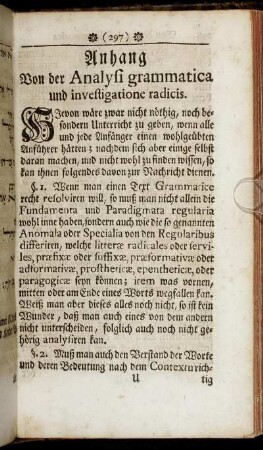 (297)
Anhang
Von der Analysi grammatica
und investigatione radicis.
HIevon wäre zwar nicht nöthig, noch be-
sondern Unterricht zu geben, wenn alle
und jede Anfänger einen wohlgeübten
Anführer hätten; nachdem sich aber einige selbst
daran machen, und nicht wohl zu finden wissen, so
kan ihnen folgendes davon zur Nachricht dienen.
§. 1. Wenn man einen Text Grammatice
recht resolviren will, so muß man nicht allein die
Fundamenta und Paradigmata regularia
wohl inne haben, sondern auch wie die so genannten
Anomala oder Specialia von den Regularibus
differiren, welche litteræ radicales oder servi-
les, præfixæ oder suffixæ, præformativæ oder
adformativæ, prostheticæ, epentheticæ, oder
paragogicæ seyn können; item was vornen,
mitten oder am Ende eines Worts wegfallen kan.
Weiß man aber dieses alles noch nicht, so ist kein
Wunder, daß man auch eines von dem andern
nicht unterscheiden, folglich auch noch nicht ge-
hörig analysiren kan.
§. 2. Muß man auch den Verstand der Worte
und deren Bedeutung nach dem Contextu rich-
U tig